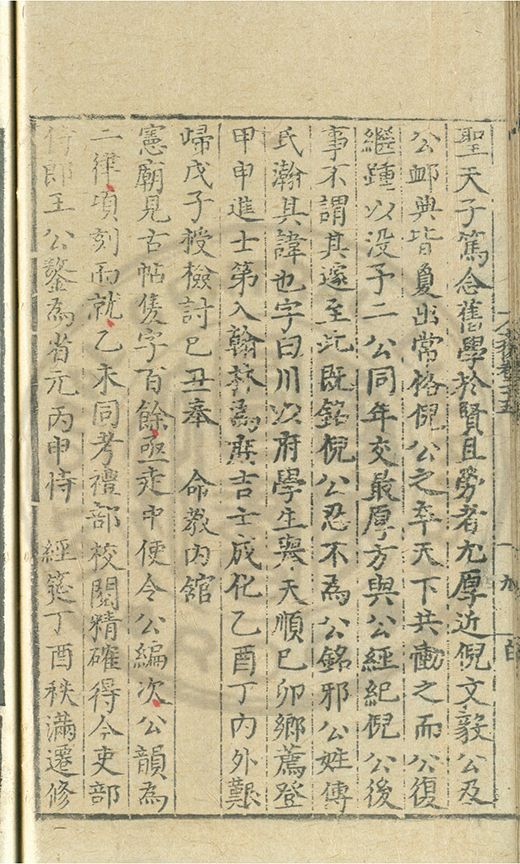 聖天子篤念舊學於賢且勞者尤厚近倪文毅公及
公卹典皆敻出常格倪公之卒天下共慟之而公復
繼踵以没予二公同年交最厚方與公經紀倪公後
事不謂其遂至此既銘倪公忍不為公銘邪公姓傅
氏瀚其諱也字曰川以府學生與天順巳卯鄉薦登
甲申進士第入翰林為庶吉士成化乙酉丁內外艱
歸戊子授檢討巳丑奉 命教內舘
憲廟見古帖隻字百餘亟走中使令公編次公韻為
二律頃刻而就乙未同考禮部校閱精確得今吏部
侍郎王公鏊為省元丙申侍 經筵丁酉秩滿遷修